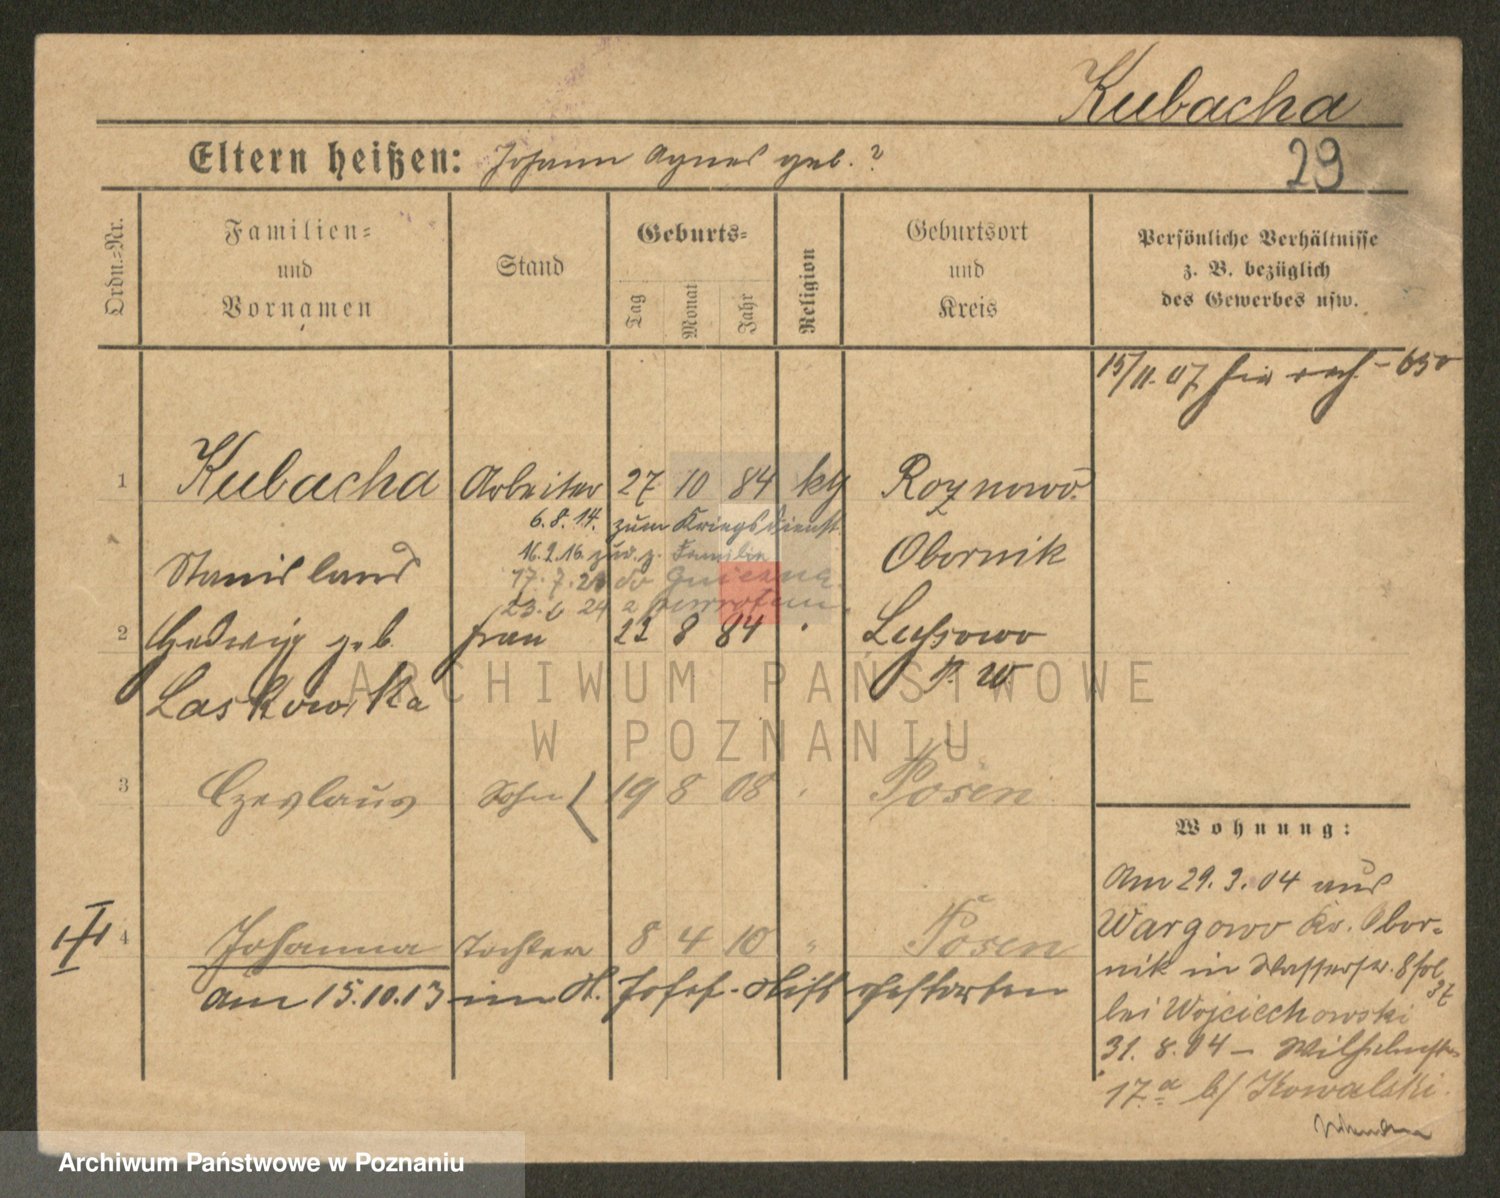 Kubacha
Eltern heißen: Johann Agnes geb. ?
29
Ordn.-Nr.
Familien- und Vornamen
Stand
Geburts-
Tag
Monat
Jahr
Religion
Geburtsort und Kreis
Persönliche Verhältnisse
z. B. bezüglich
des Gewerbes usw.
15/11.07
1 Kubacha Arbeiter 27 10 84 kth Roznowo
6.8.14. zum Kriegsdienst
Stanislaus 16.2.16. zur. z. Familie Obornik
17.7.20 do Gniezna
23.6 24 z powrotem
2 Hedwig geb. Frau 22 8 84 " Lussowo
Laskowska P. W.
ARCHIWUM PAŃSTWOWE
W POZNANIU
3 Czeslaus Sohn 19 8 08 " Posen
Wohnung:
Am 29.3.04 aus
Wargowo Kr. Obor-
nik in Wasserstr. 8
bei Wojciechowski
31.8.04 – Wilhelmstr
17a b/ Kowalski.
4 Johanna Tochter 8 4 10 " Posen
am 15.10.13 im St. Josef-Stift gestorben
Archiwum Państwowe w Poznaniu